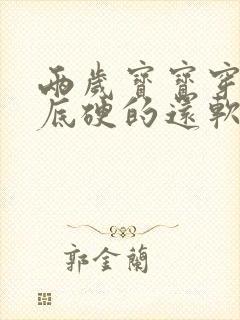 兩歲寶寶穿
底硬的還軟
郭金蘭